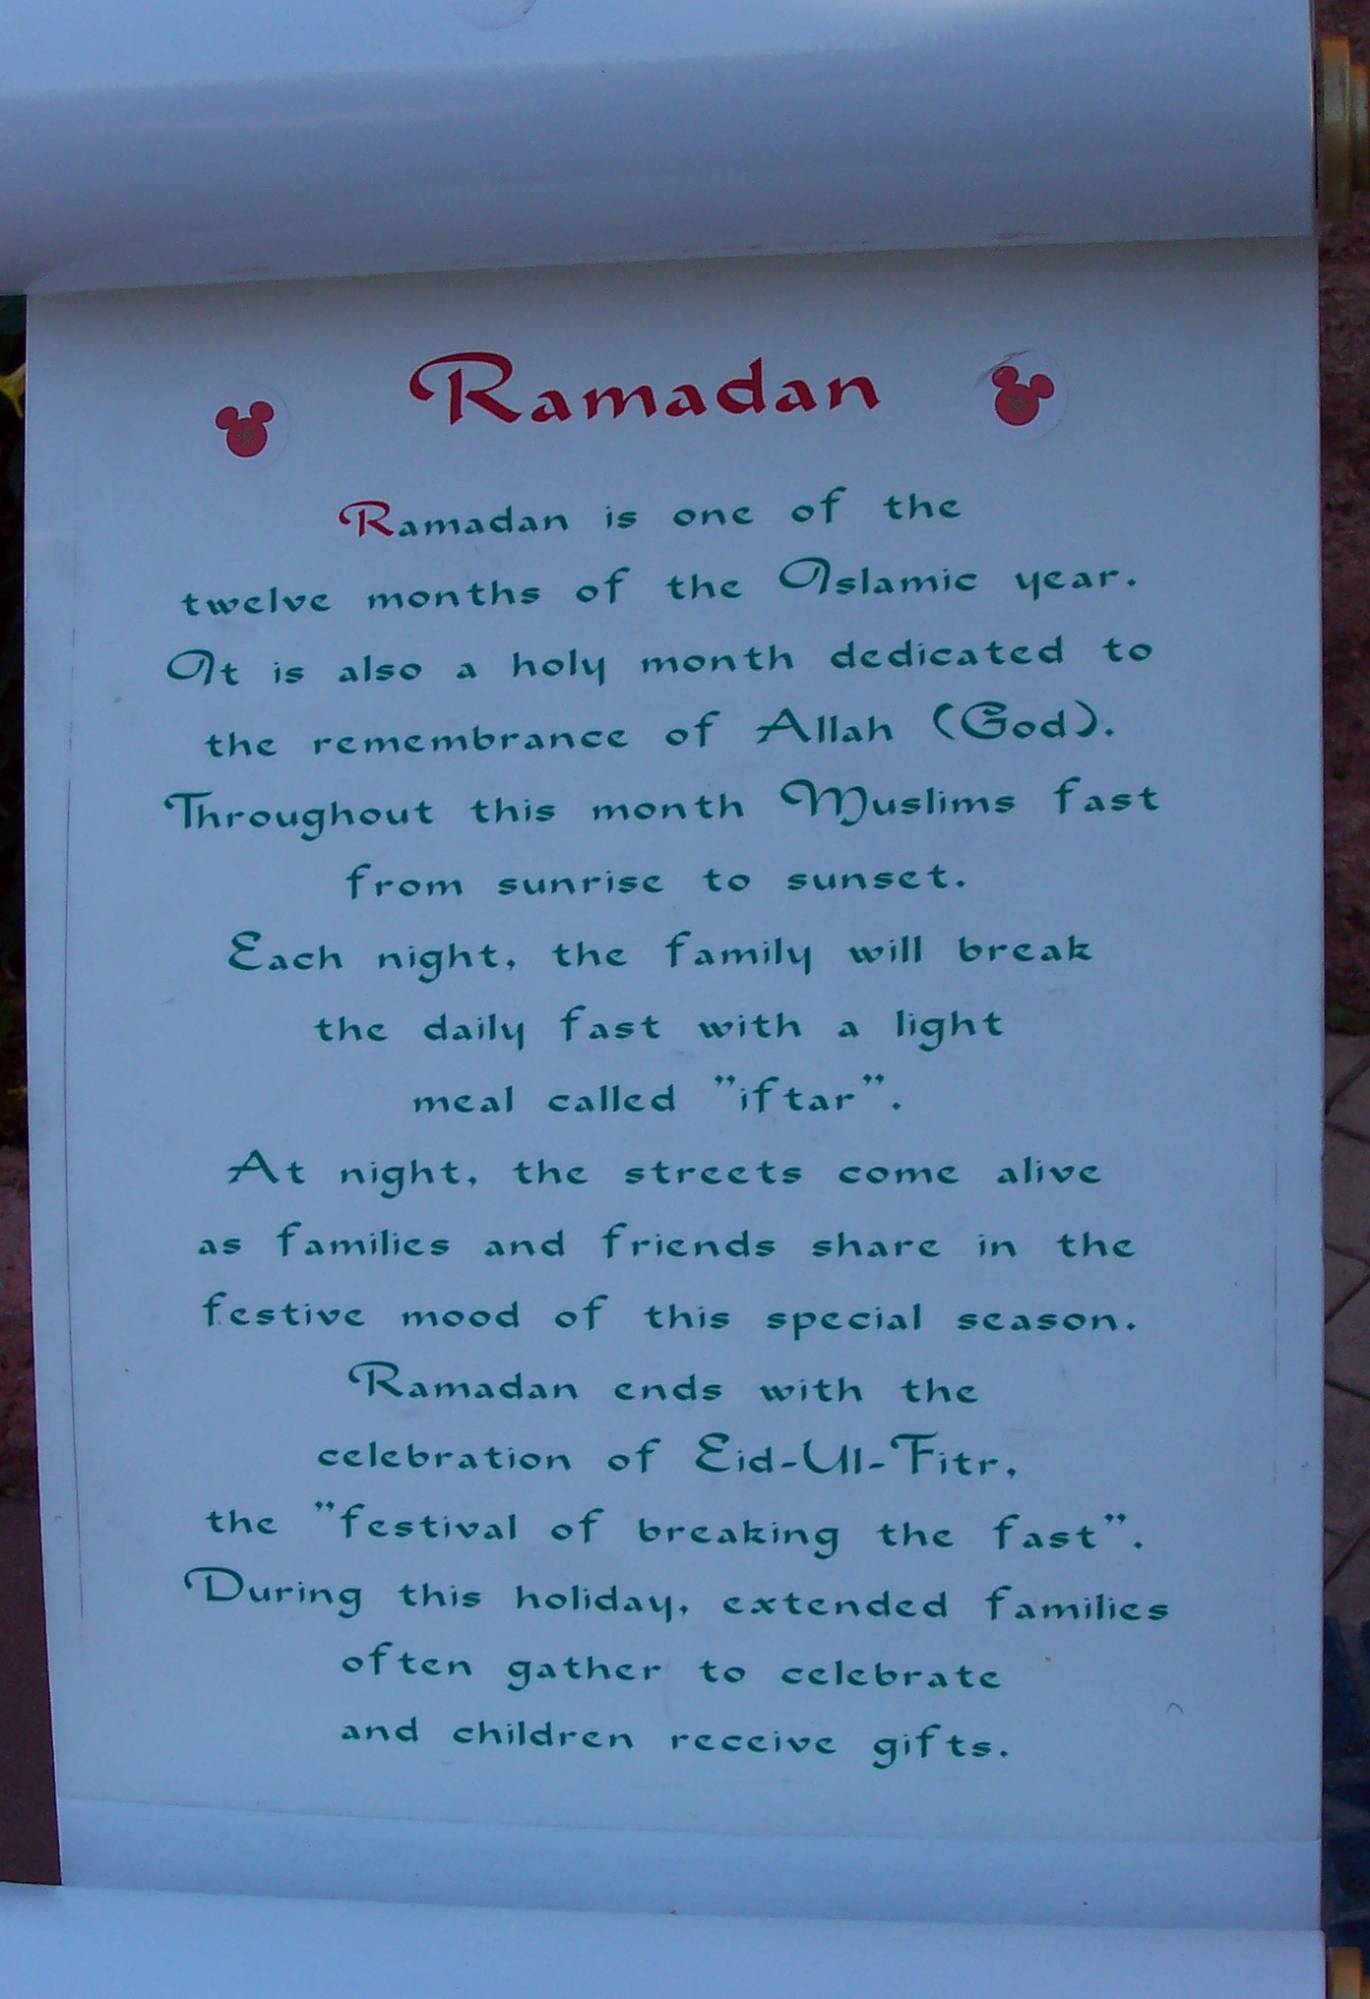 Ramadan
Ramadan is one of the
twelve months of the Islamic year.
It is also a holy month dedicated to
the remembrance of Allah (God).
Throughout this month Muslims fast
from sunrise to sunset.
Each night, the family will break
the daily fast with a light
meal called "iftar".
At night, the streets come alive
as families and friends share in the
festive mood of this special season.
Ramadan ends with the
celebration of Eid-Ul-Fitr,
the "festival of breaking the fast".
During this holiday, extended families
often gather to celebrate
and children receive gifts.